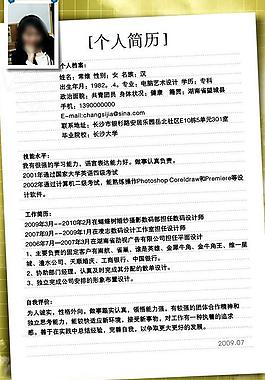 [个人简历]
个人档案:
姓名:常维 性别:女 民族:汉
出生年月:1982。.4。专业:电脑艺术设计 学历:专科
政治面貌:共青团员 身体状况:健康 籍贯:湖南省望城县
手机:1390000000
E-mail:changsijia@sina.com
联系地址:长沙市银杉路安居乐园岳北社区E10栋5单元301室
毕业院校:长沙大学
技能水平:
我有很强的学习能力、语言表达能力好。做事认真负责。
2001年通过国家大学英语四级考试
2002年通过计算机二级考试,能熟练操作Photoshop Coreldraw和Premiere等设
计软件。
工作简历:
2009年3月--2010年2月在蝴蝶树婚纱摄影数码部担任数码设计师
2007年9月--2009年1月在凌志数码设计工作室担任设计师
2006年7月--2007年3月在湖南省劲视广告有限公司担任平面设计
1、主要负责的固定客户有南航、省展、谁是英雄、金犀牛角、金牛角王、维一星
城、湟水公司、天顺楼尺、工商银行、中国银行。
2、协助部门经理,认真及时完成其分配的数单设计。
3、独立完成公司安排的形象布置设计。
自我评价:
为人诚实,性格外向,做事踏实认真,领悟能力强。有较强的团体合作精神和
独立思考能力,能较快适应新环境、接受新事物,对工作有一种执着的追求
感,善于在实践中总结经验,完善自我,以争取更大更好的发展。
2009.07